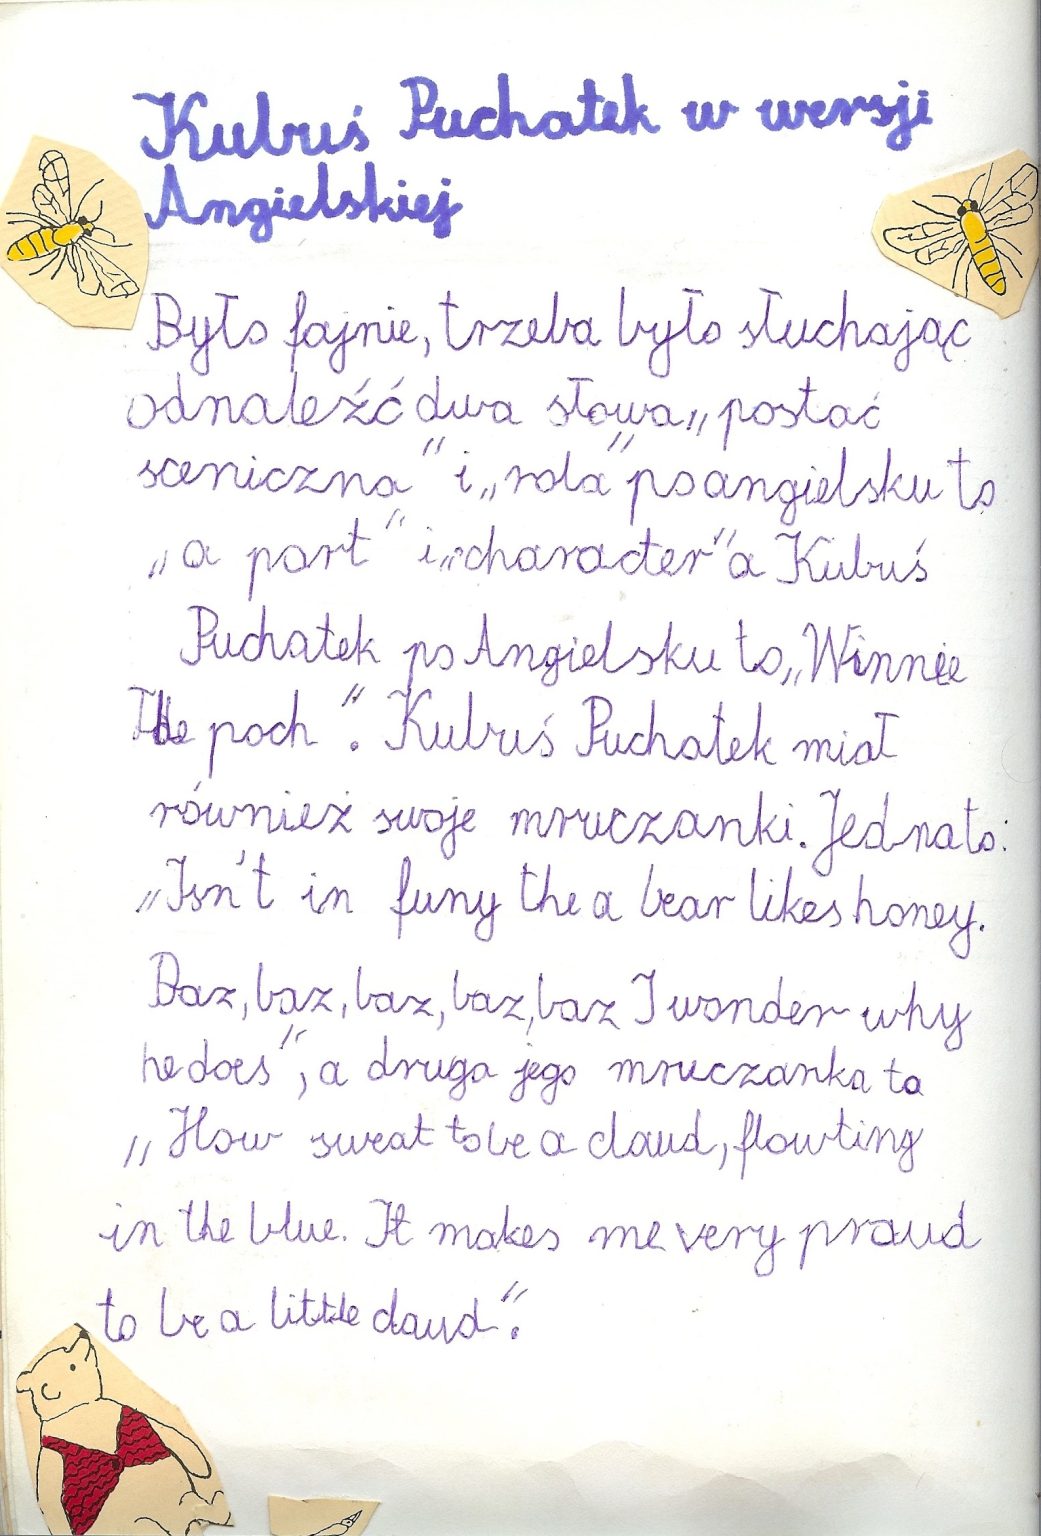 Kubuś Puchatek w wersji
Angielskiej
Było fajnie, trzeba było słuchając
odnaleźć dwa słowa „postać
sceniczna" i „rola" po angielsku to
„a part" i „character" a Kubuś
Puchatek po Angielsku to „Winnie
The pooh". Kubuś Puchatek miał
również swoje mruczanki. Jedna to:
„Isn't in funy the a bear likes honey.
Baz, baz, baz, baz, baz I wonder why
he does", a druga jego mruczanka to
„How sweat to be a claud, flowting
in the blue. It makes me very praud
to be a little claud".